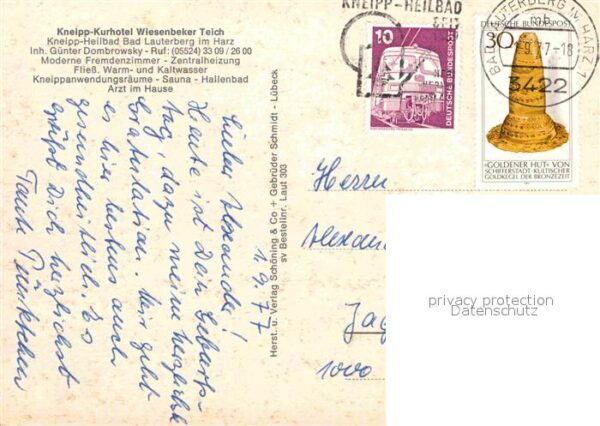 Kneipp-Kurhotel Wiesenbeker Teich
Kneipp-Heilbad Bad Lauterberg im Harz
Inh. Günter Dombrowsky - Ruf: (05524) 33 09 / 26 00
Moderne Fremdenzimmer - Zentralheizung
Fließ. Warm- und Kaltwasser
Kneippanwendungsräume - Sauna - Hallenbad
Arzt im Hause
1.9.77
Lieber Alexander!
Heute ist Dein Geburts-
tag, dazu meine herzliche
Gratulation. Mir geht
es hier bestens auch
gesundheitlich. Es
grüßt Dich herzlichst
Tante
Herst. u. Verlag Schöning & Co + Gebrüder Schmidt - Lübeck
sv Bestellnr. Laut 303
KNEIPP-HEILBAD
SEIT
10
DEUTSCHE BUNDESPOST
30
DEUTSCHE BUNDESPOST
»GOLDENER HUT« VON
SCHIFFERSTADT · KULTISCHER
GOLDKEGEL DER BRONZEZEIT
BAD LAUTERBERG IM HARZ 1
mb
.9.77-18
3422
Herrn
Alexan
Jag
1000
privacy protection
Datenschutz